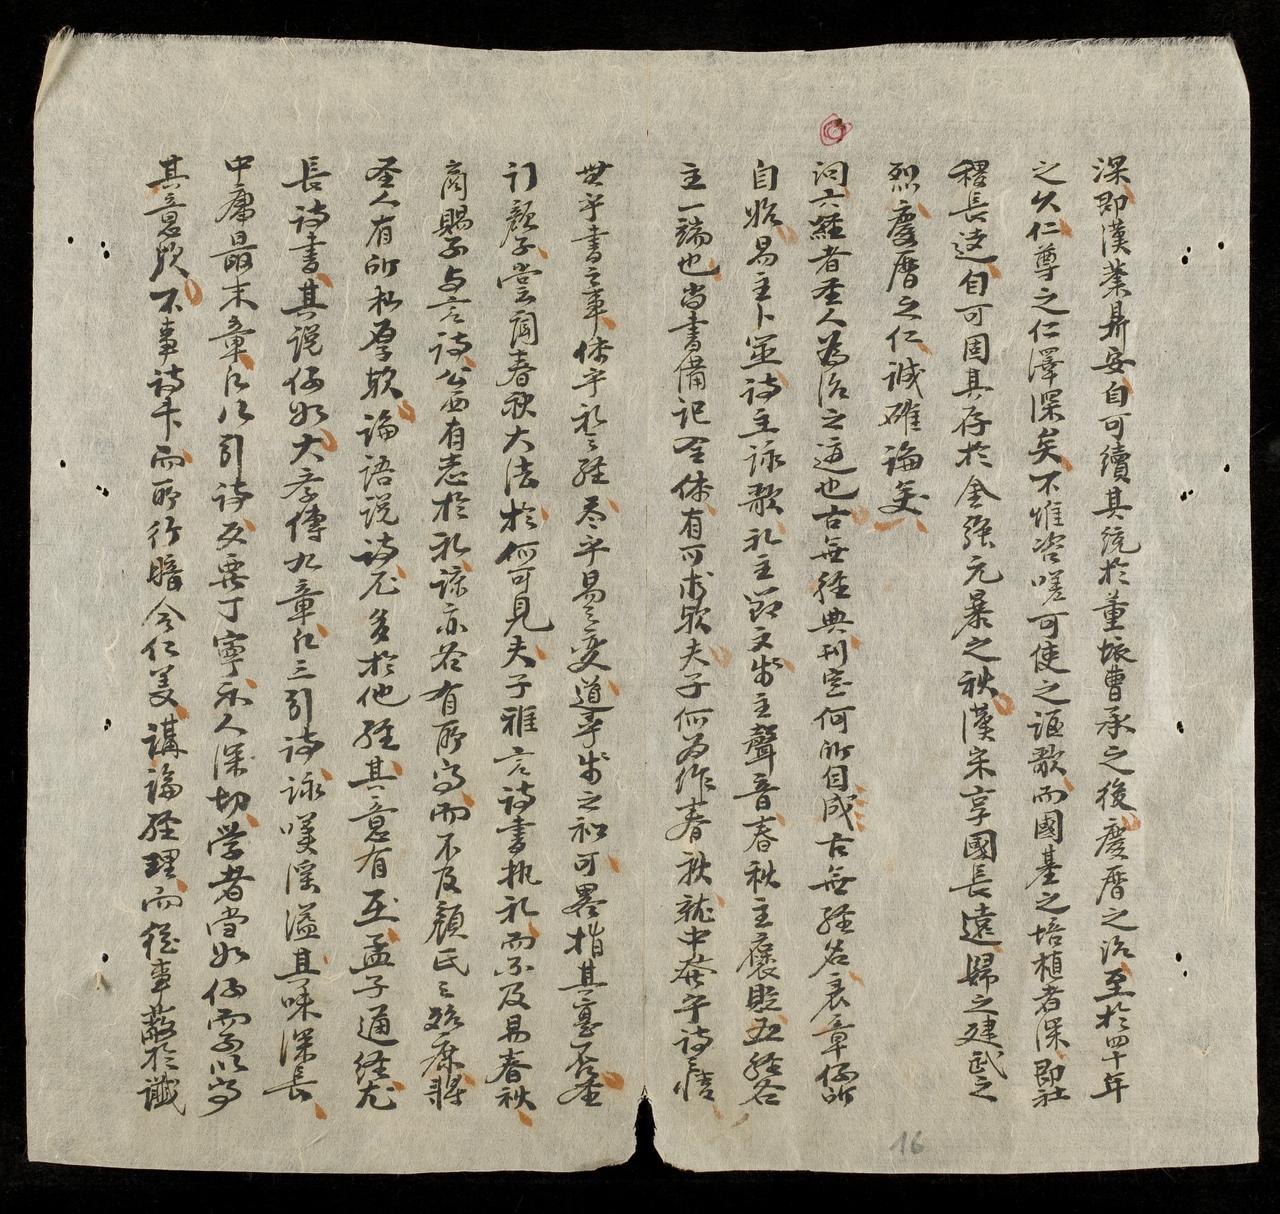 深即漢業鼎安自可續其統於董振曹承之後慶曆之治至於四十年
之久仁尊之仁澤深矣不惟咨嗟可使之謳歌而國基之培植者深即社
稷長遠自可固其存於金強元暴之秋漢宋享國長遠歸之建武之
烈慶曆之仁誠確論矣
問六經者聖人為治之道也古無經典刊定何所自成古無經名表章何所
自始易主卜筮詩主詠歌礼主節文樂主聲音春秋主褒貶五經各
主一端也尚書備記全体有可求歟夫子何為作春秋說中於乎詩之情
世乎書之事体乎礼之經尽乎易之变道乎樂之和可畧指其意否圣
門顏子嘗聞春秋大法於何可見夫子雅言詩書执礼而不及易春秋
商賜子与言詩公西有志於礼諒亦各有所高而不及顏氏之殆庶將
圣人有所私厚歟論語說詩尤多於他經其意有在孟子通經尤
長詩書其說何如大孝傳九章凡三引詩詠嘆淫溢其味深長
中庸最末章凡八引詩反要丁寧示人深切学者当如何而可以高
其意歟不事詩书而所行暗合仁美講論經理而從事蔽於讖
16